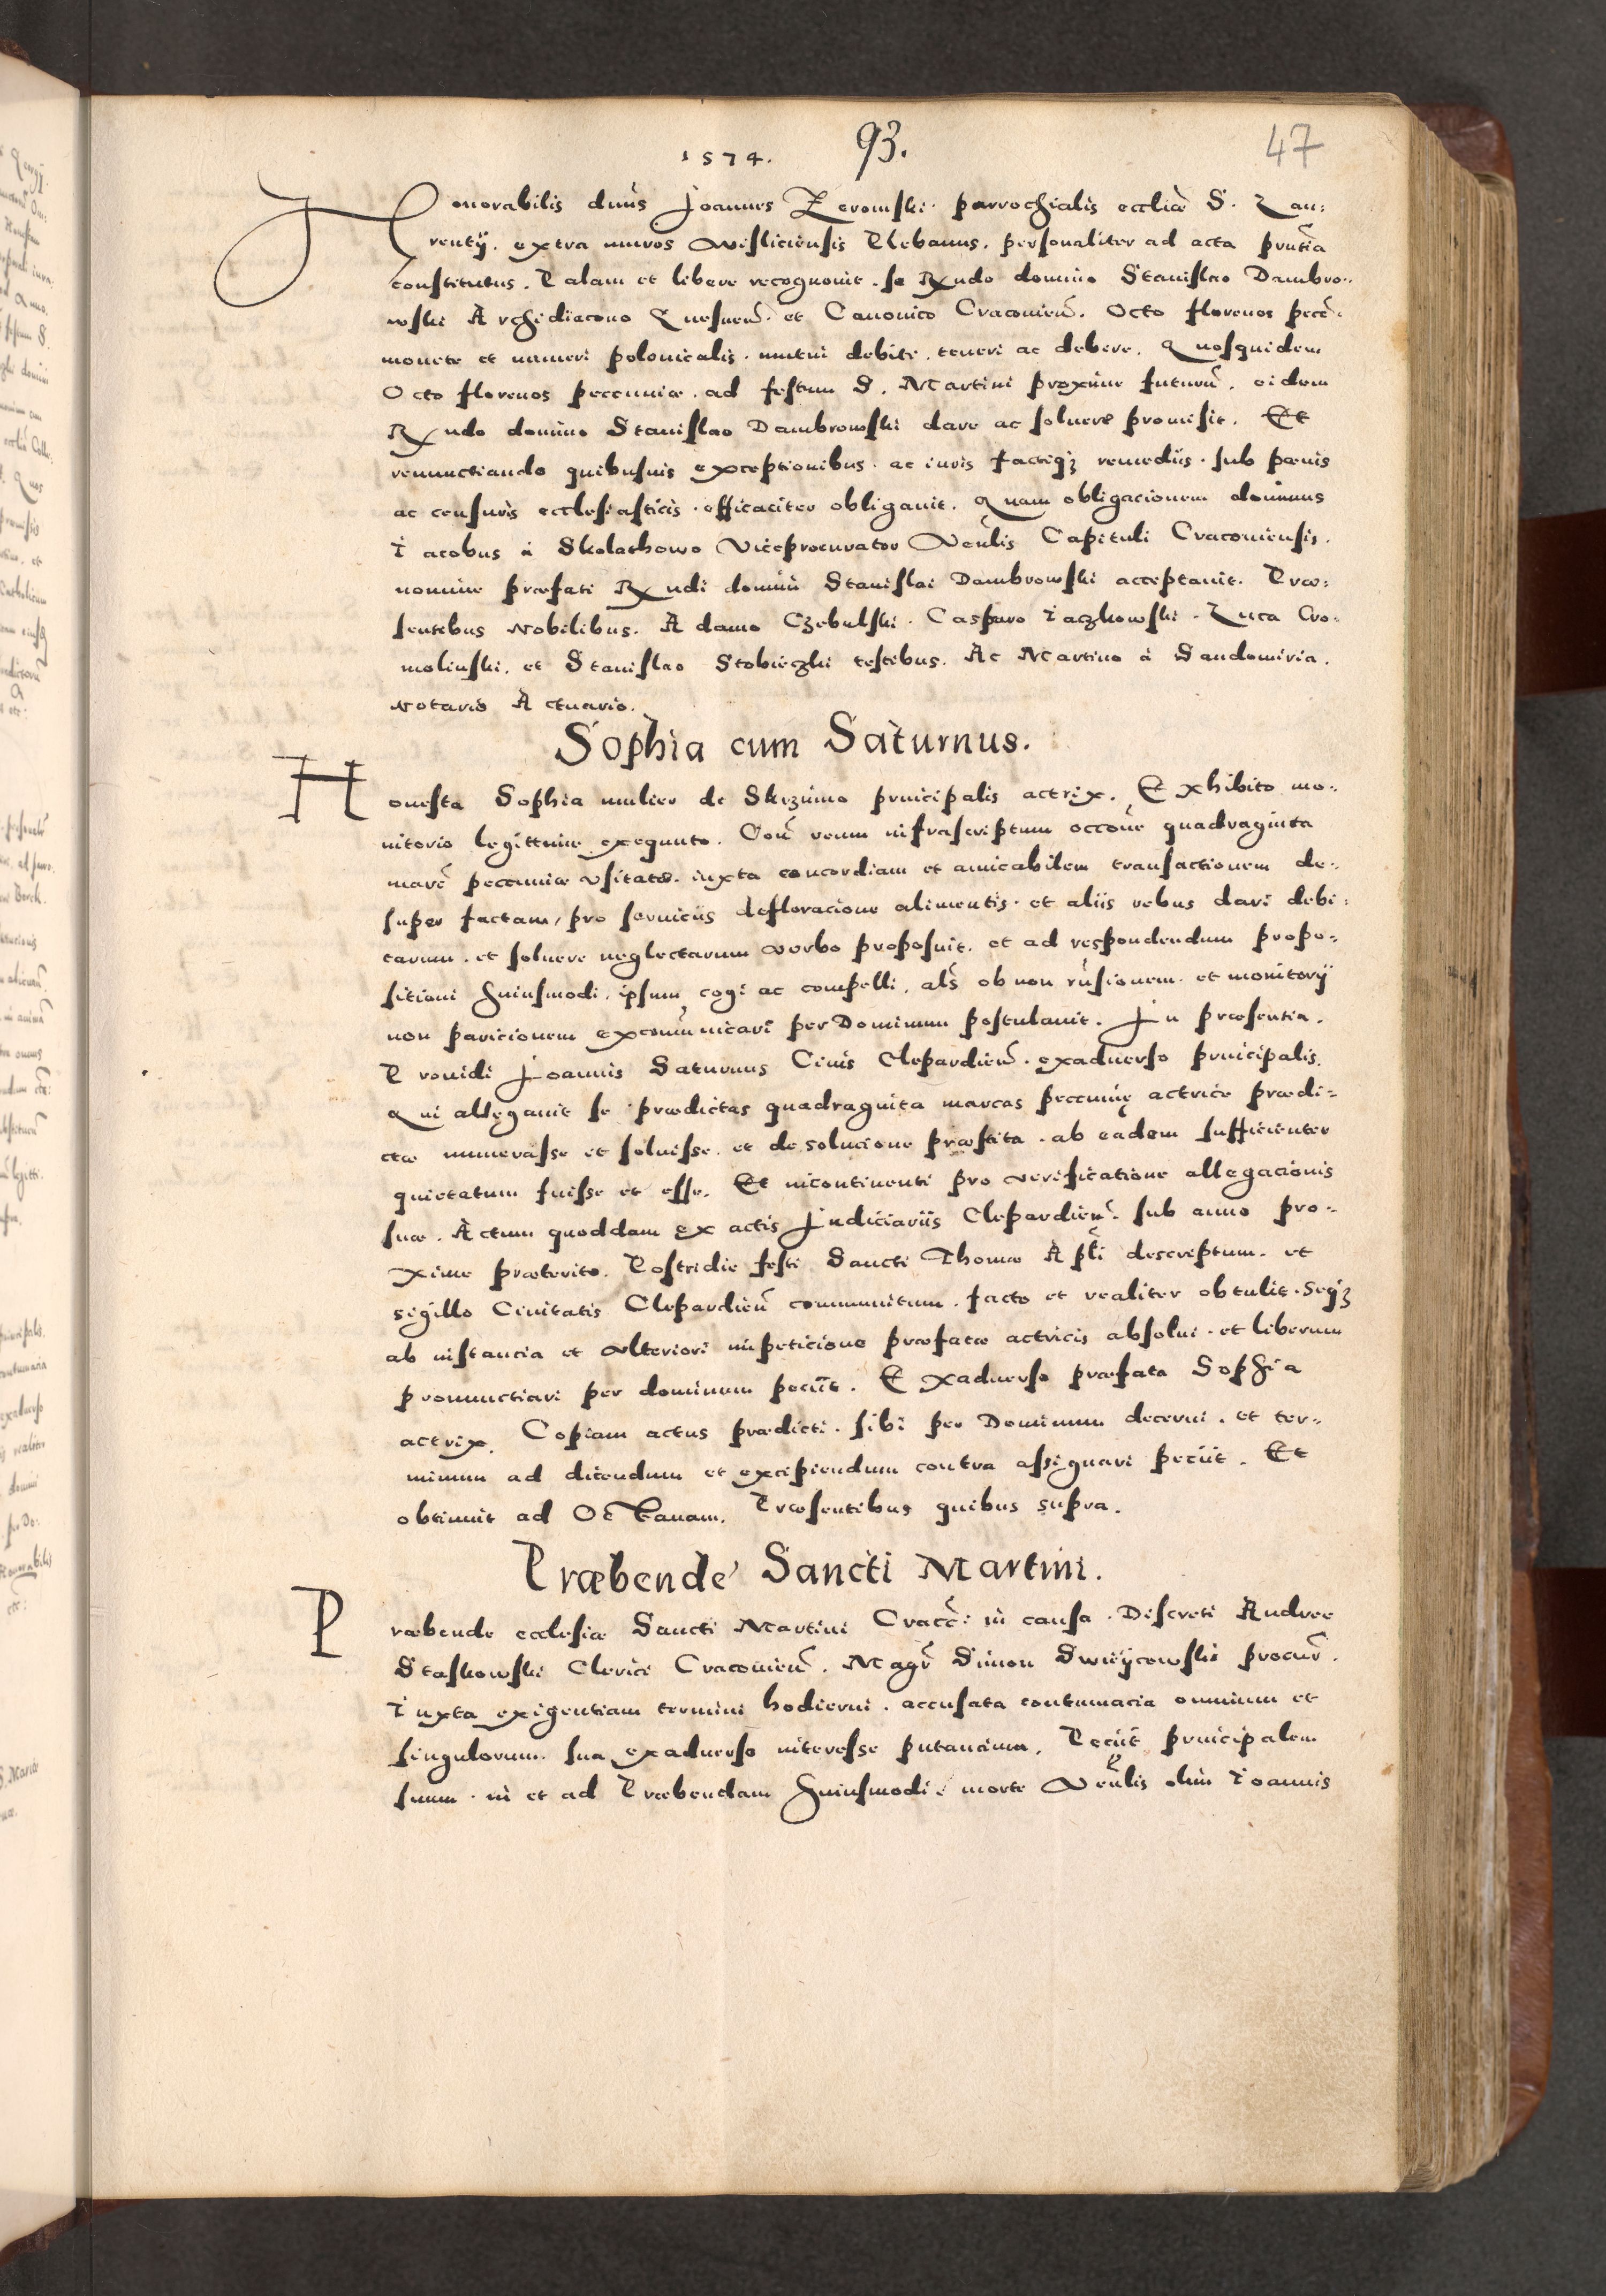 1574. 93. 47
Honorabilis dnus Joannes Zeromski. parrochialis eccliæ S. Lau:
rentij. extra muros Visliciensis Plebanus. personaliter ad acta prntia
constitutus. Palam et libere recognovit. se Rndo domino Stanislao Dambro:
wski Archidiacono Gnesnen. et Canonico Cracovien. Octo florenos pecc.
monete et numeri polonicalis. mutui debite. teneri ac debere. Quosquidem
Octo florenos peccuniæ. ad festum S. Martini proxime futurum. eidem
Rndo domino Stanislao Dambrowski dare ac soluere promisit. Et
renunctiando quibusuis exceptionibus. ac iuris factiqz remediis. sub pænis
ac censuris ecclesiasticis. efficaciter obligauit. Quam obligacionem dominus
Jacobus à Skolathowo Viceprocurator Venlis Capituli Cracoviensis.
nomine præfati Rndi domini Stanislai Dambrowski acceptauit. Præ:
sentibus Nobilibus. Adamo Czebulski. Casparo Jaczkowski. Luca Cro:
molinski. et Stanislao Stobieczki testibus. Ac Martino à Sandomiria.
Notario Actuario.
Sophia cum Saturnus.
Honesta Sophia mulier de Skrzinno principalis actrix. Exhibito mo:
nitorio legittime exequuto. Con reum infrascriptum occone quadraginta
marc peccuniæ vsitatæ. iuxta concordiam et amicabilem transactionem de:
super factam, pro seruiciis defloracione alimentis. et aliis rebus dari debi:
tarum. et soluere neglectarum verbo proposuit. et ad respondendum propo:
sitioni huiusmodi. ipsum cogi ac compelli. als ob non rnsionem. et monitorij
non paricionem excommunicari per Dominum postulauit. In præsentia.
Prouidi Joannis Saturnus Ciuis Clepardien. exaduerso principalis.
Qui allegauit se prædictas quadraginta marcas peccunię actrice prædi:
ctæ numerasse et soluisse. et de solucione præstita. ab eadem sufficienter
quietatum fuisse et esse. Et incontinenti pro verificatione allegacionis
suæ. Actum quoddam ex actis Judiciariis Clepardien. sub anno pro:
xime præterito. Postridie festi Sancti Thomæ Apli descriptum. et
sigillo Ciuitatis Clepardien communitum. facto et realiter obtulit. Seqz
ab instancia et vlteriori impeticione præfatæ actricis absolui. et liberum
pronunctiari per dominum peciit. Exaduerso præfata Sophia
actrix. Copiam actus prædicti. sibi per Dominum decerni. et ter:
minum ad dicendum et excipiendum contra assignari peciit. Et
obtinuit ad Octauam. Præsentibus quibus supra.
Præbende Sancti Martini.
Præbende ecclesiæ Sancti Martini Cracc. in causa. Discreti Andree
Staskowski Clerici Cracovien. Magr Simon Dwijcowski procur.
Juxta exigentiam termini hodierni. accusata contumacia omnium et
singulorum. sua exaduerso interesse putancium. Peciit principalem
suum. in et ad Præbendam huiusmodi. morte Venlis olim Joannis